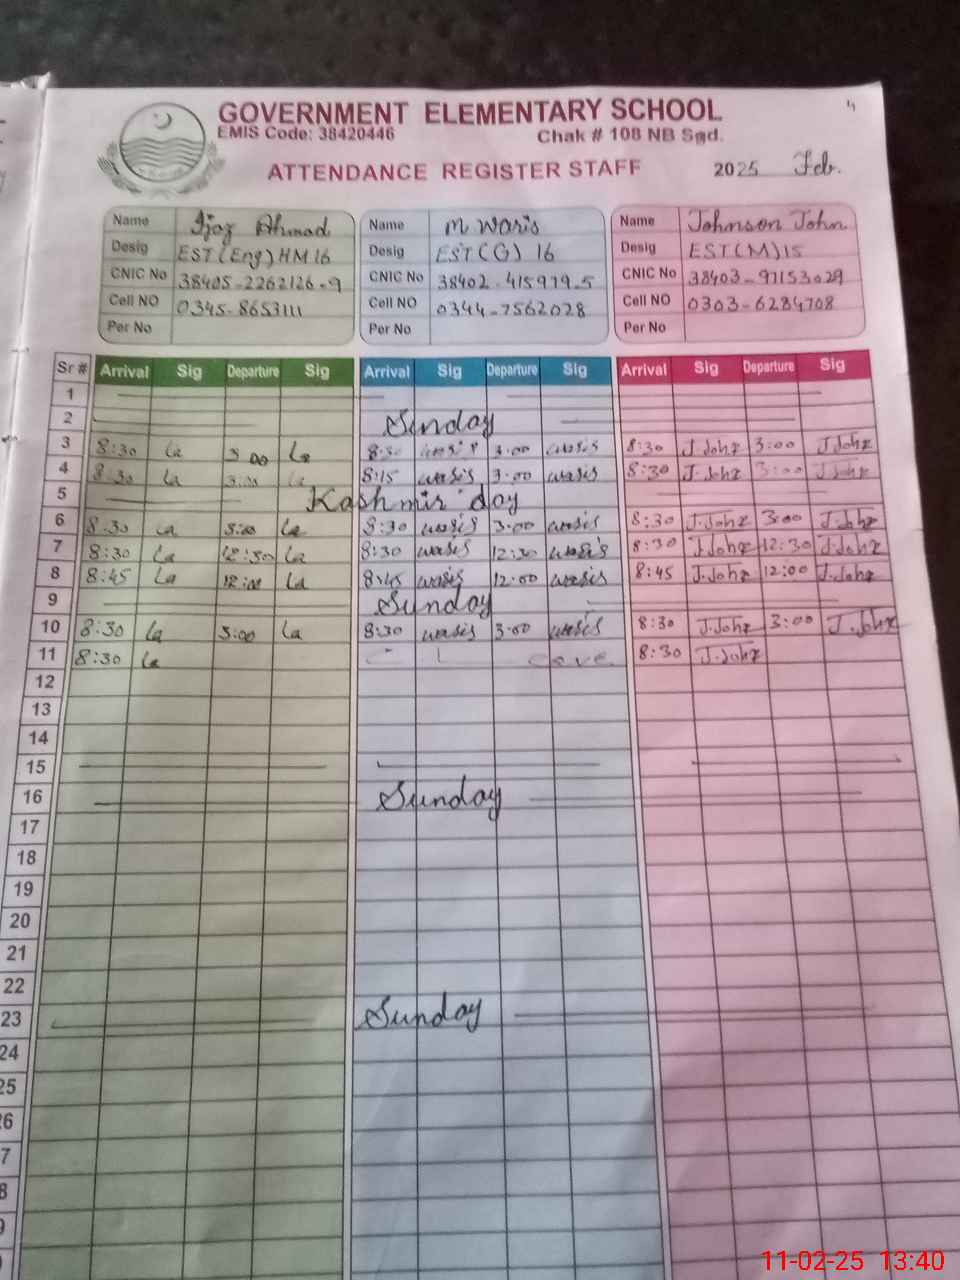 4
GOVERNMENT ELEMENTARY SCHOOL
EMIS Code: 38420446 Chak # 108 NB Sgd.
ATTENDANCE REGISTER STAFF 2025 Feb.
Name Ijaz Ahmad Name M Waris Name Johnson John
Desig EST(Eng) HM 16 Desig EST(G) 16 Desig EST(M)15
CNIC No 38405-2262126-9 CNIC No 38402-415979-5 CNIC No 38403-97153029
Cell NO 0345-8653111 Cell NO 0344-7562028 Cell NO 0303-6284708
Per No Per No Per No
Sr # Arrival Sig Departure Sig Arrival Sig Departure Sig Arrival Sig Departure Sig
1
2 Sunday
3 8:30 3:00 8:30 waris 3:00 waris 8:30 J.John 3:00 J.John
4 8:30 3:00 8:15 waris 3:00 waris 8:30 J.John 3:00 J.John
5 Kashmir day
6 8:30 3:00 8:30 waris 3:00 waris 8:30 J.John 3:00 J.John
7 8:30 12:30 8:30 waris 12:30 waris 8:30 J.John 12:30 J.John
8 8:45 12:00 8:45 waris 12:00 waris 8:45 J.John 12:00 J.John
9 Sunday
10 8:30 3:00 8:30 waris 3:00 waris 8:30 J.John 3:00 J.John
11 8:30 C L 8:30 J.John
12
13
14
15
16 Sunday
17
18
19
20
21
22
23 Sunday
24
25
26
7
8
9
11-02-25 13:40